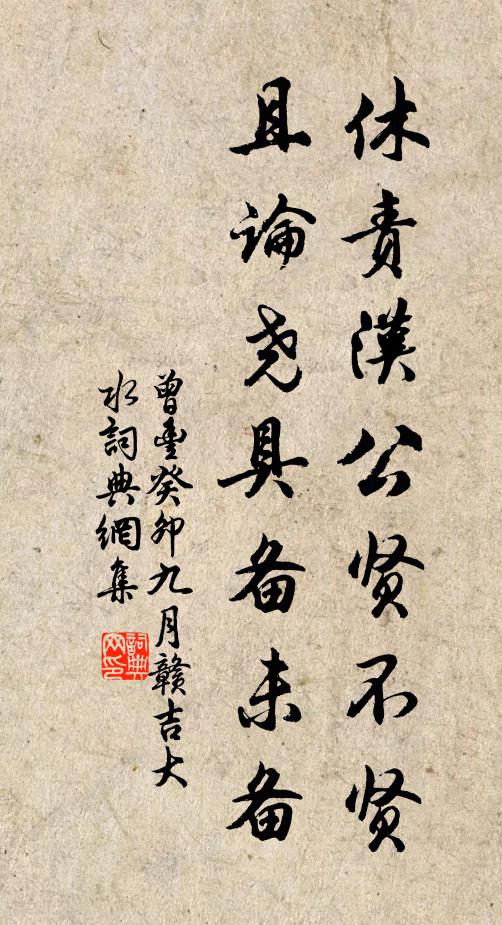 休责漢公贤不贤
且論尧具备未备
曾豐癸卯九月赣吉大
水詞典網集
詞典
网印